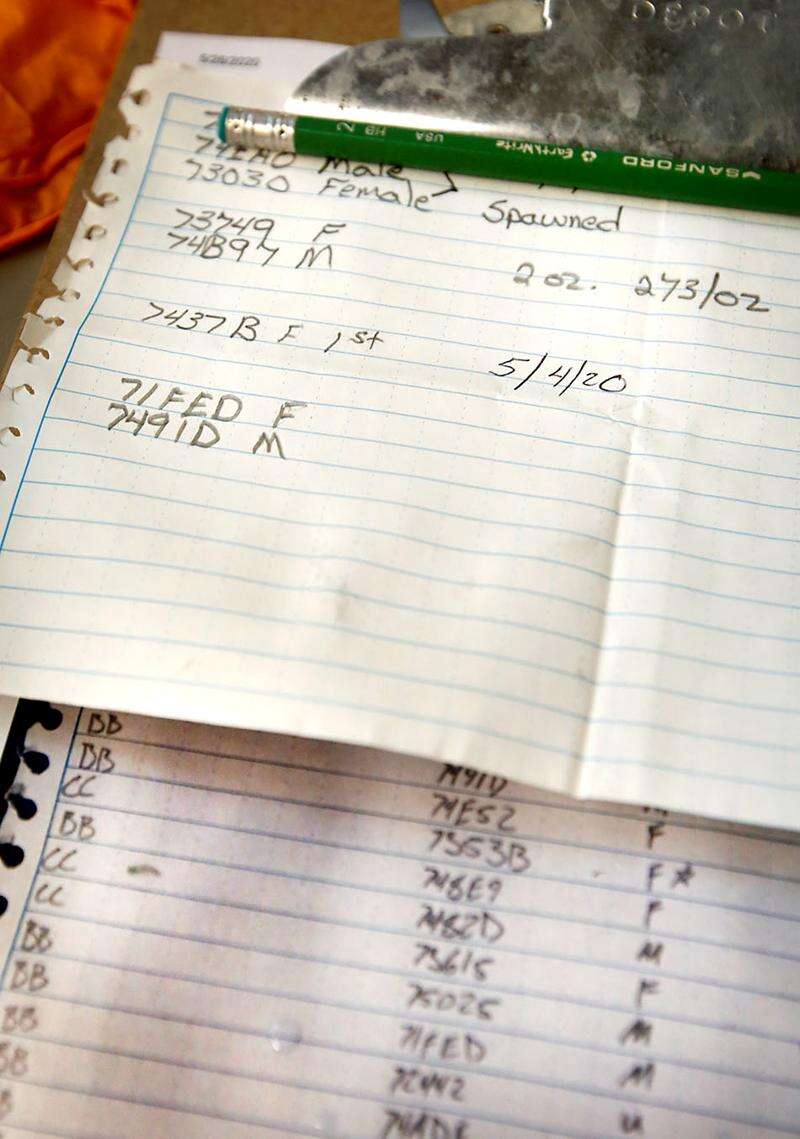 DEPOT
5/28/2020
SANFORD EarthWrite USA HB 2
74EA0 Male
73030 Female > Spawned
73749 F
74B97 M
2 oz. 273/oz
7437B F 1st
5/4/20
71FED F
7491D M
BB
BB 7491D M
CC 74E52 F
BB 7353B F*
CC 748E9 F
CC 7482D M
BB 73615 F
BB 75025 M
BB 71FED M
BB 72442 U